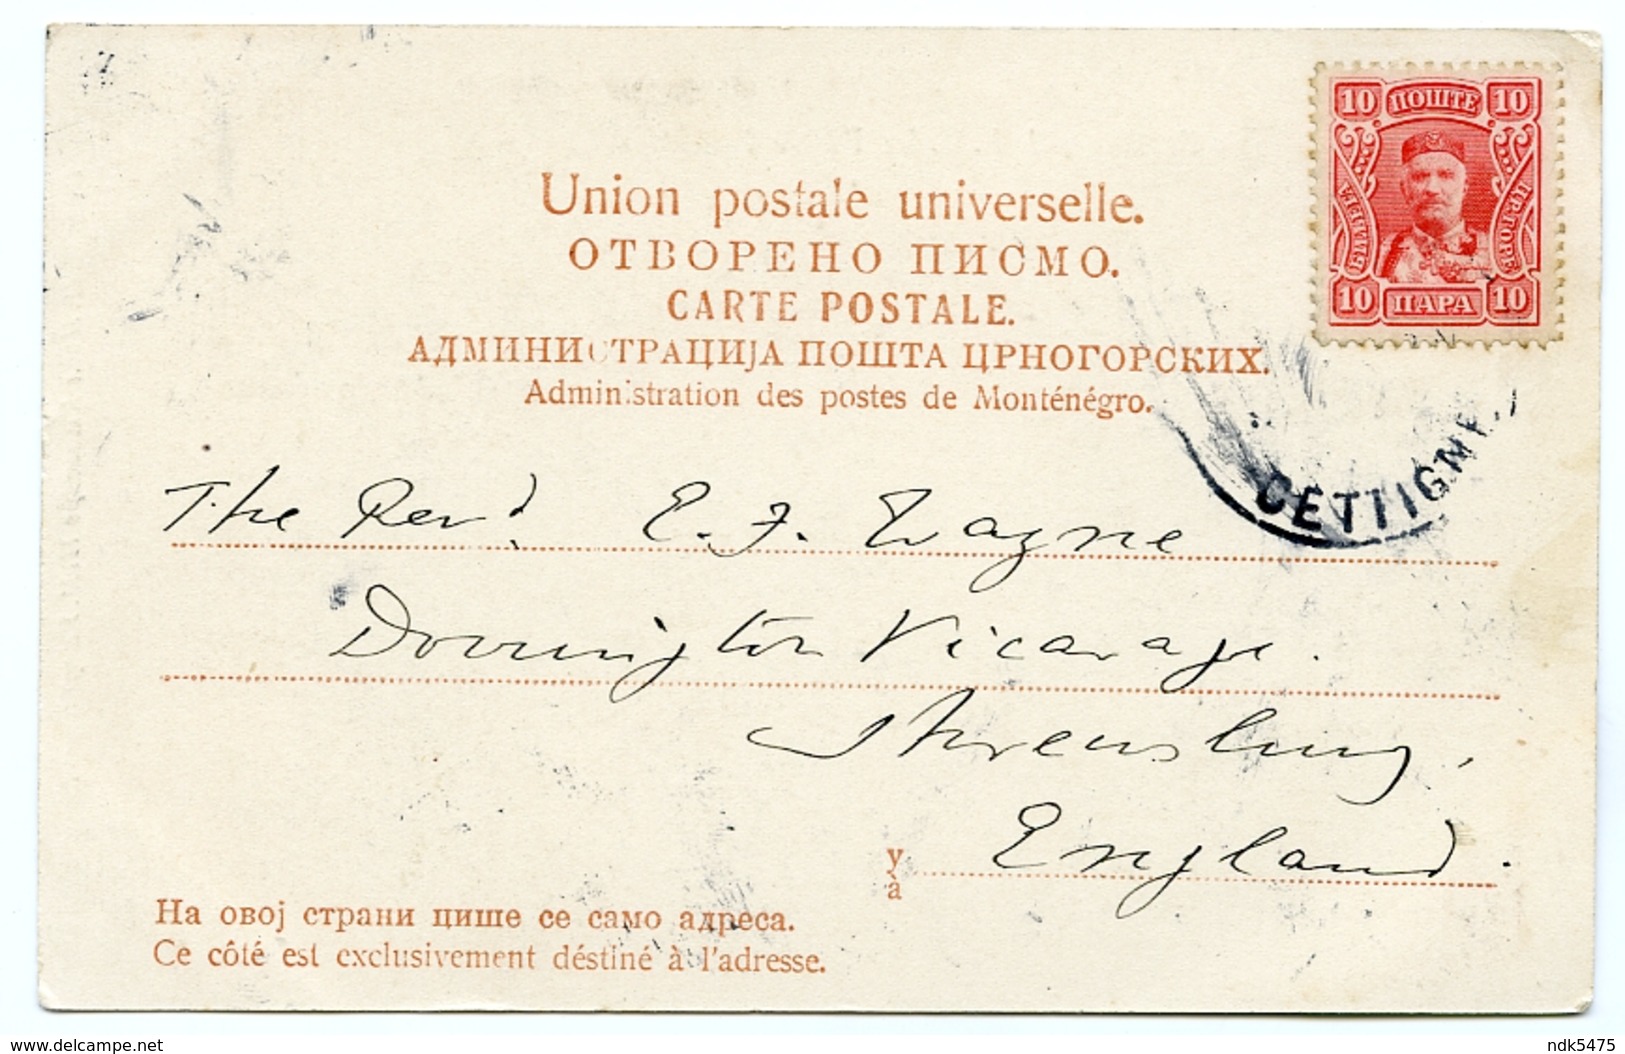 10 ПОШТЕ 10
ЦР.ГОРЕ
10 ПАРА 10
Union postale universelle.
ОТВОРЕНО ПИСМО.
CARTE POSTALE.
АДМИНИСТРАЦИЈА ПОШТА ЦРНОГОРСКИХ.
Administration des postes de Monténégro.
CETTIGNE
The Revd. E. F. Wayne
Dorrington Vicarage.
Shrewsbury,
у
à
England.
На овој страни пише се само адреса.
Ce côté est exclusivement déstiné à l'adresse.
www.delcampe.net
ndk5475